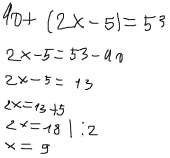 40+(2x-5)=53
2x-5=53-40
2x-5=13
2x=13+5
2x=18 | :2
x=9